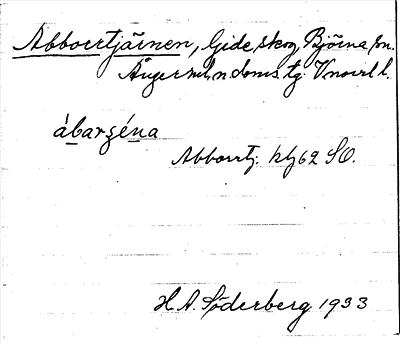 Abborrtjärnen, Gideå skog, Björna sn.
Ångermanl. n. doms. tg. V.norrl. l.
ábarʒéna
Abborrtj. ktj 62 SO.
H. A. Söderberg 1933